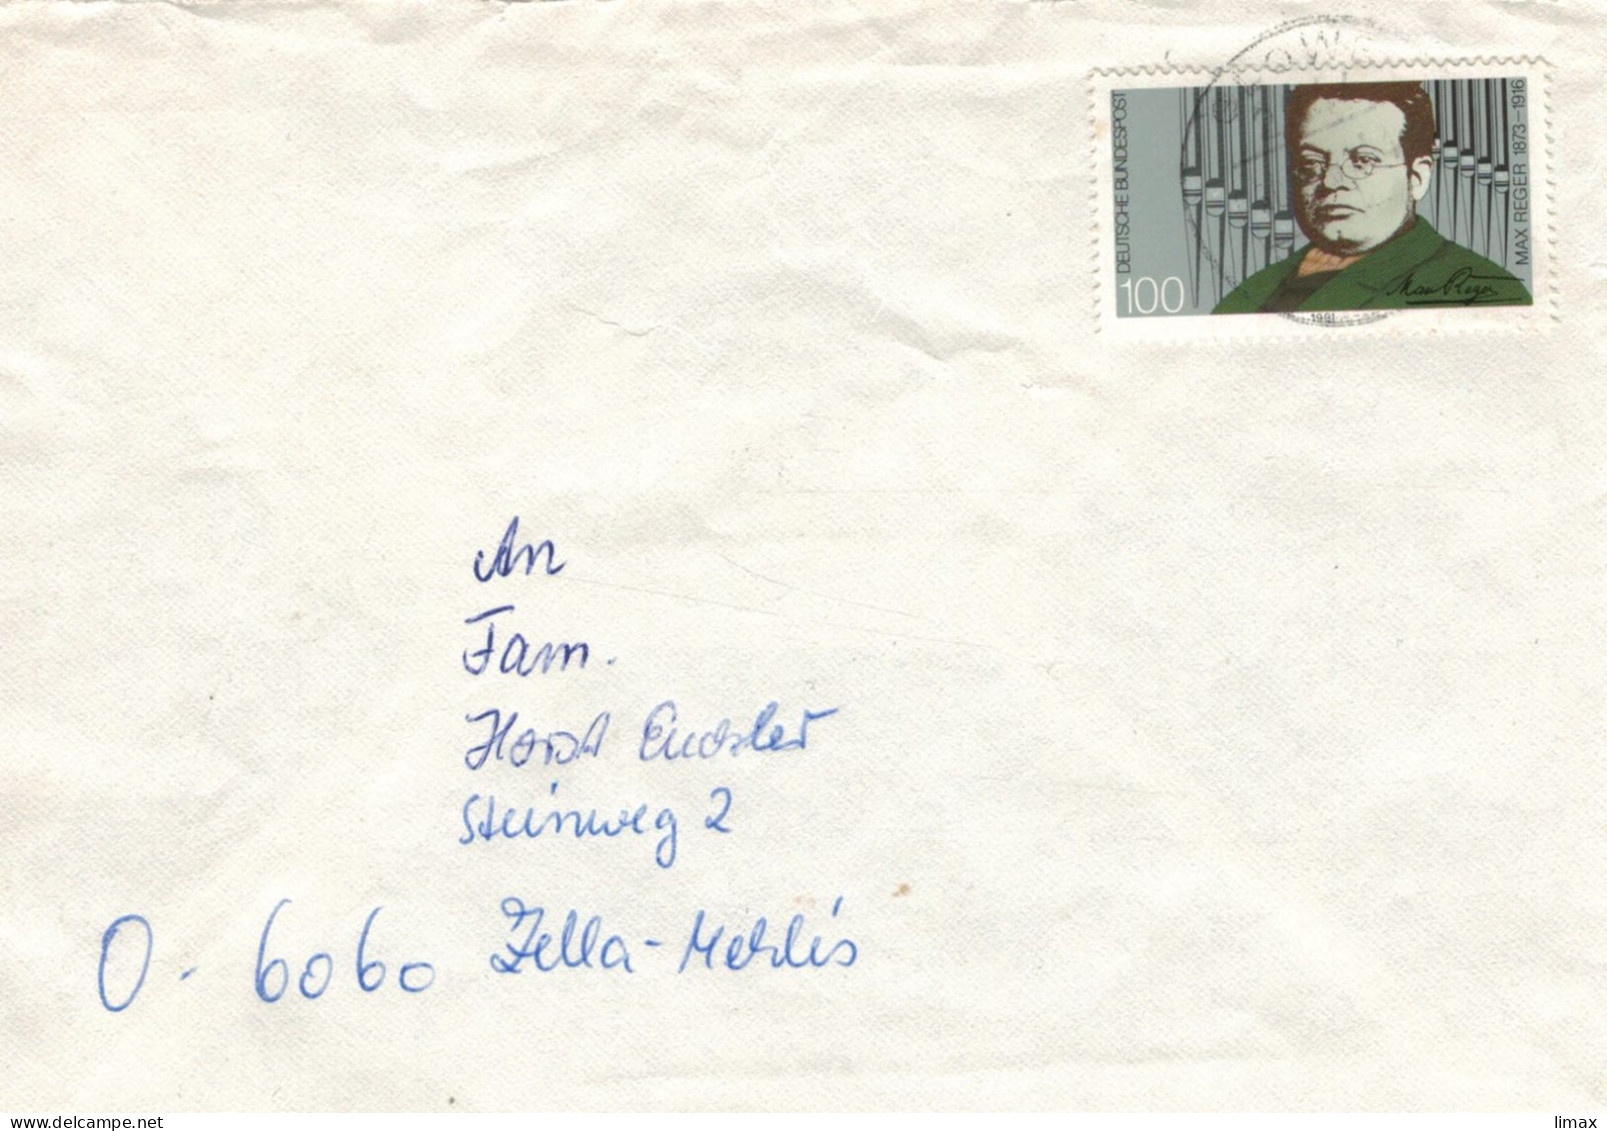 DEUTSCHE BUNDESPOST
100
MAX REGER 1873–1916
Max Reger
1991
An
Fam.
Horst
Steinweg 2
O - 6060 Zella-Mehlis
delcampe.net
limax